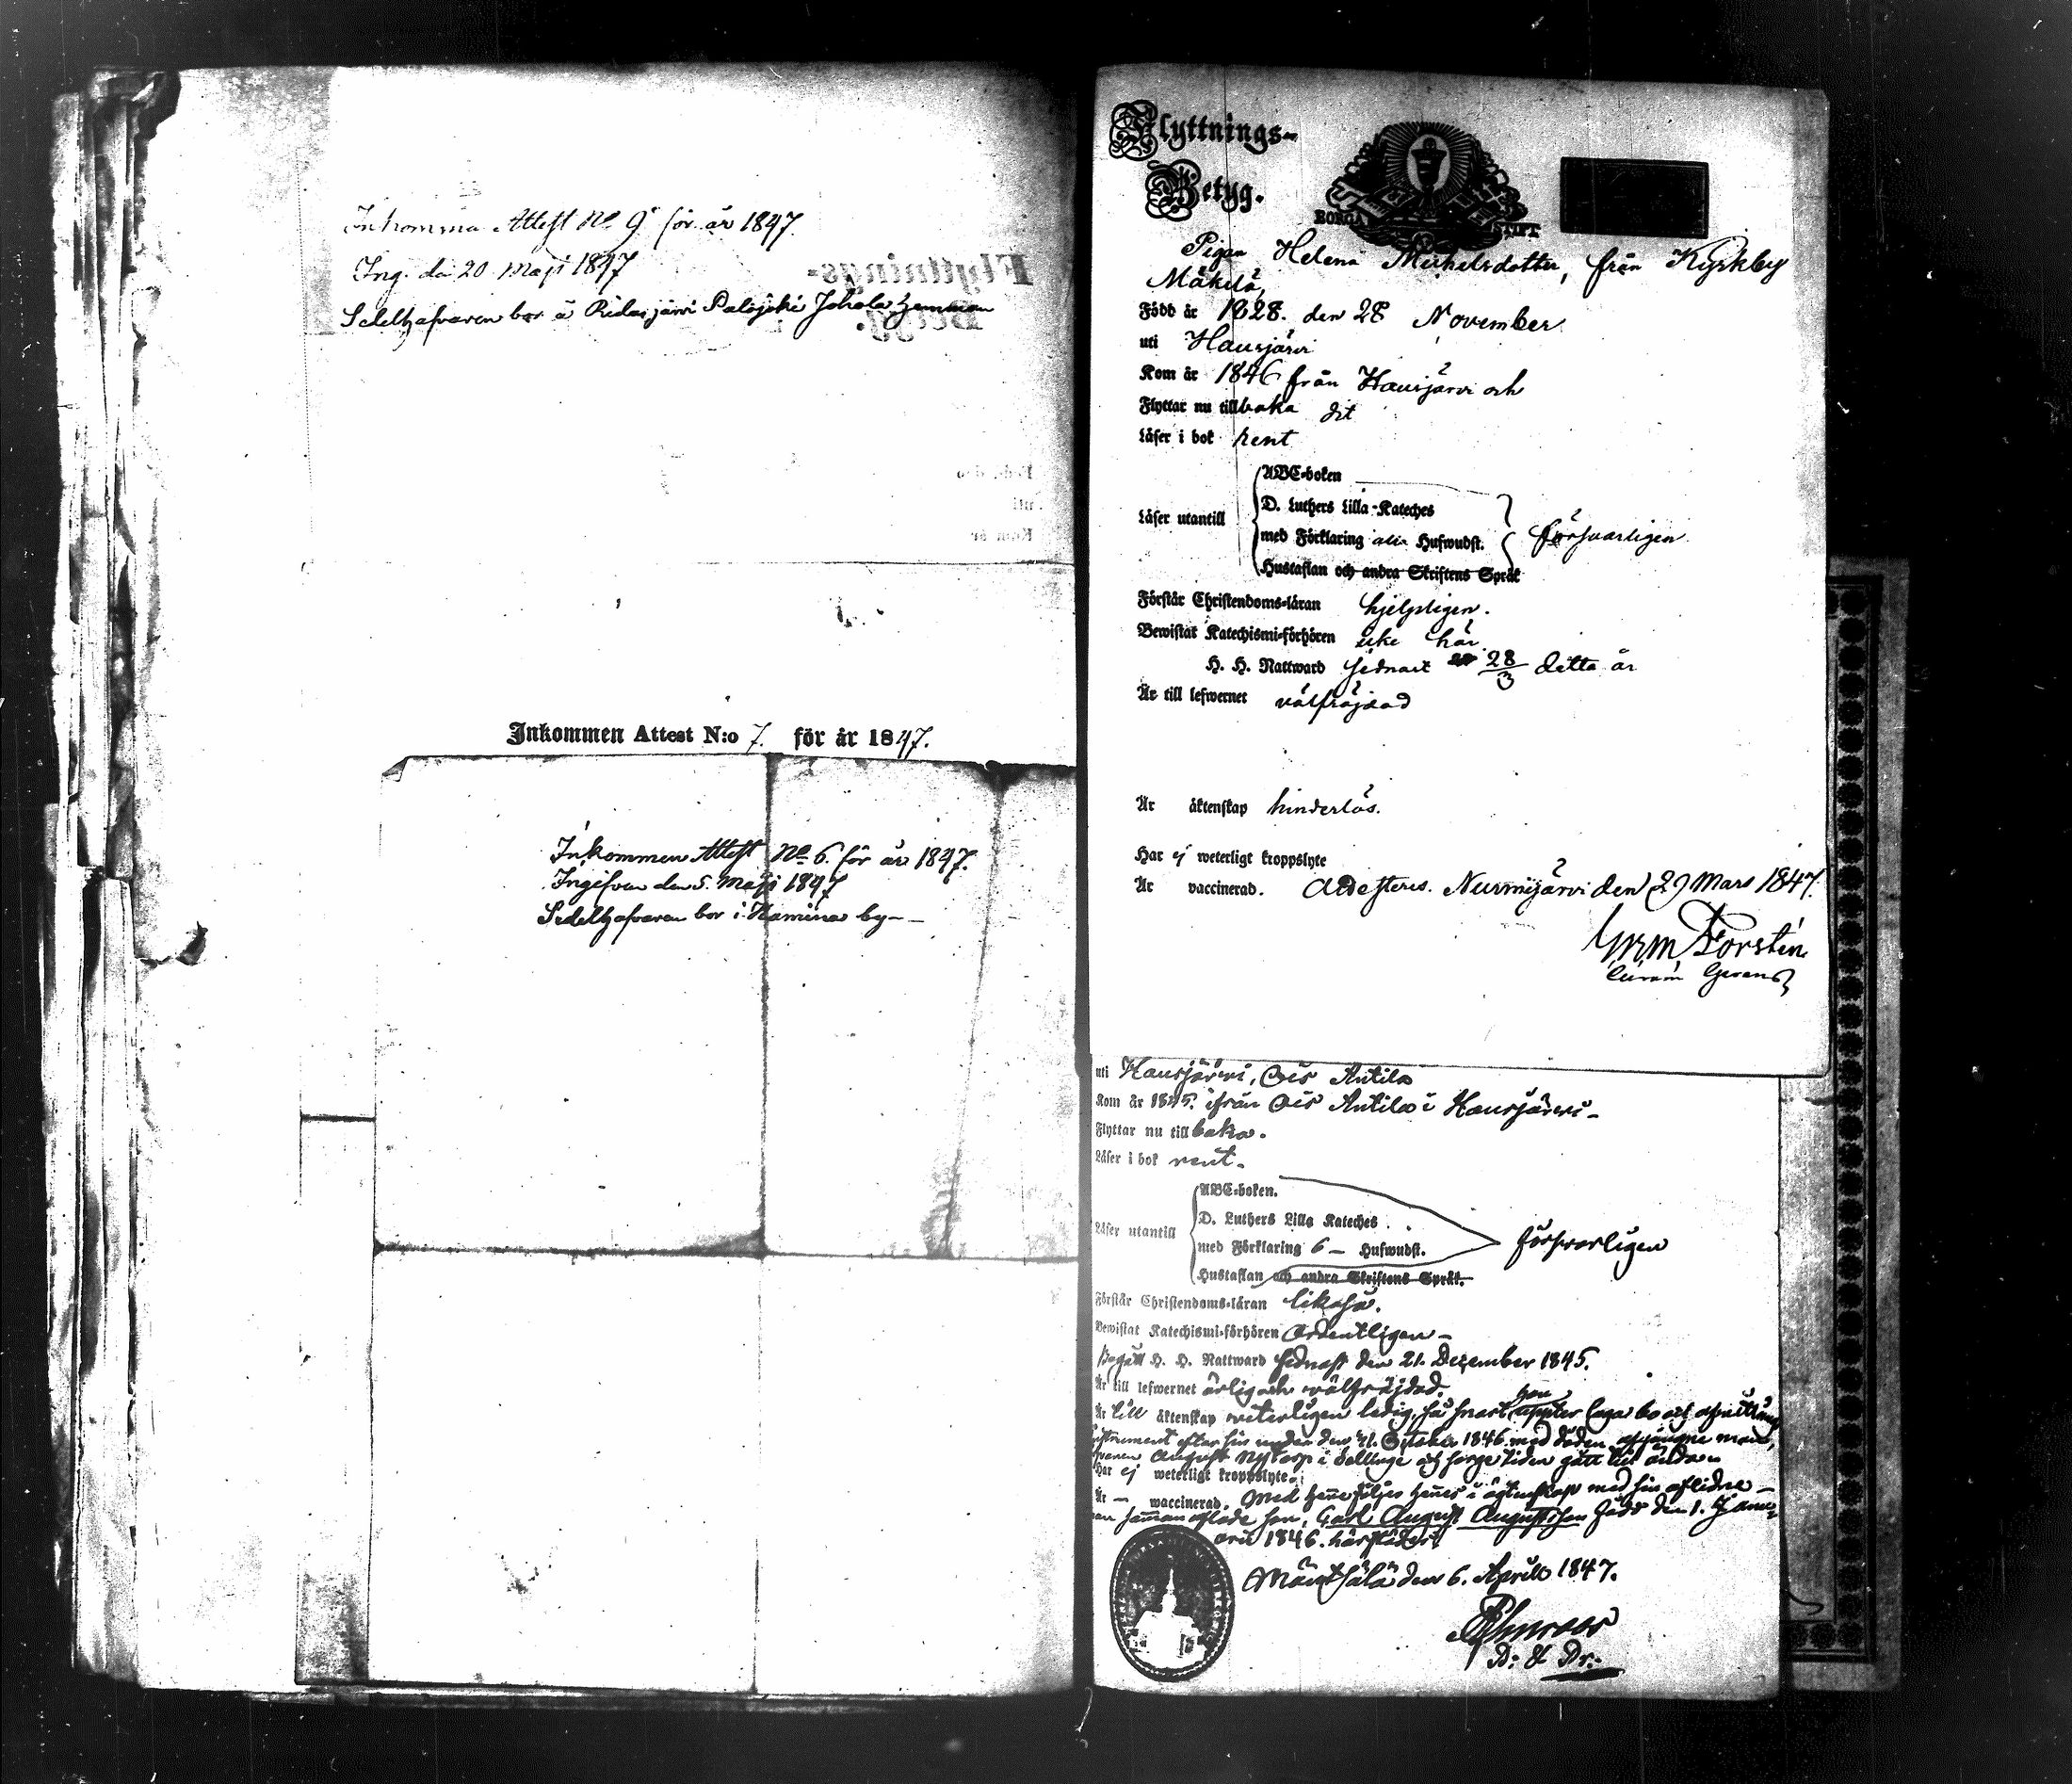 Inkomma Attest No 9 för år 1847.
Ing. den 20 Maji 1847
Sedelhafvaren bor å Ridasjärvi Palojoki Johola hemman
Inkommen Attest N:o 7. för år 1847.
Inkommen Attest No 6. för år 1847.
Ingifven den 5. Maji 1847
Sedelhafvaren bor i Kaminas by
Flyttnings-
Betyg.
BORGÅ STIFT
Pigan Helena Michelsdotter, från Kyrkby
Mäkelä,
Född år 1828. den 28 November
uti Hausjärvi
Kom år 1846 från Hausjärvi och
Flyttar nu tillbaka dit
Läser i bok rent
Läser utantill
ABC-boken
D. Luthers Lilla-Kateches
med Förklaring alla Hufwudst.
Hustaflan och andra Skriftens Språk
försvarligen
Förstår Christendoms-läran hjelpligen.
Bewistat Katechismi-förhören icke här
H. H. Nattward sednast 28/3 detta år
Är till lefwernet välfräjdad
Är äktenskap hinderlös.
Har ej weterligt kroppslyte
Är vaccinerad. Attesteras. Nurmijärvi den 29 Mars 1847.
Forstén
uti Hausjärvi, Ois Antila
Kom år 1845. ifrån Ois Antila i Hausjärvi
Flyttar nu tillbaka.
Läser i bok rent.
Läser utantill
ABC-boken.
D. Luthers Lilla Kateches
med Förklaring 6 Hufwudst.
Hustaflan och andra Skriftens Språk.
försvarligen
Förstår Christendoms-läran likaså.
Bewistat Katechismi-förhören ordentligen
Begått H. H. Nattward sednast den 21. December 1845.
Är till lefwernet ärlig och välfräjdad.
Är till äktenskap veterligen ledig, så snart hon upviser laga bo och afvittrings
instrument efter sin under den 21. October 1846 med döden afgångne man,
August Nystorp i Sellinge och sorgetiden gått till ända
Har ej weterligt kroppslyte.
Är waccinerad. Med henne följer hennes i ägtenskap med sin aflidne
man samman aflade son, Carl August Augustsson född den 1. Janu-
arii 1846. härstädes.
Mäntsälä den 6. Aprill 1847.